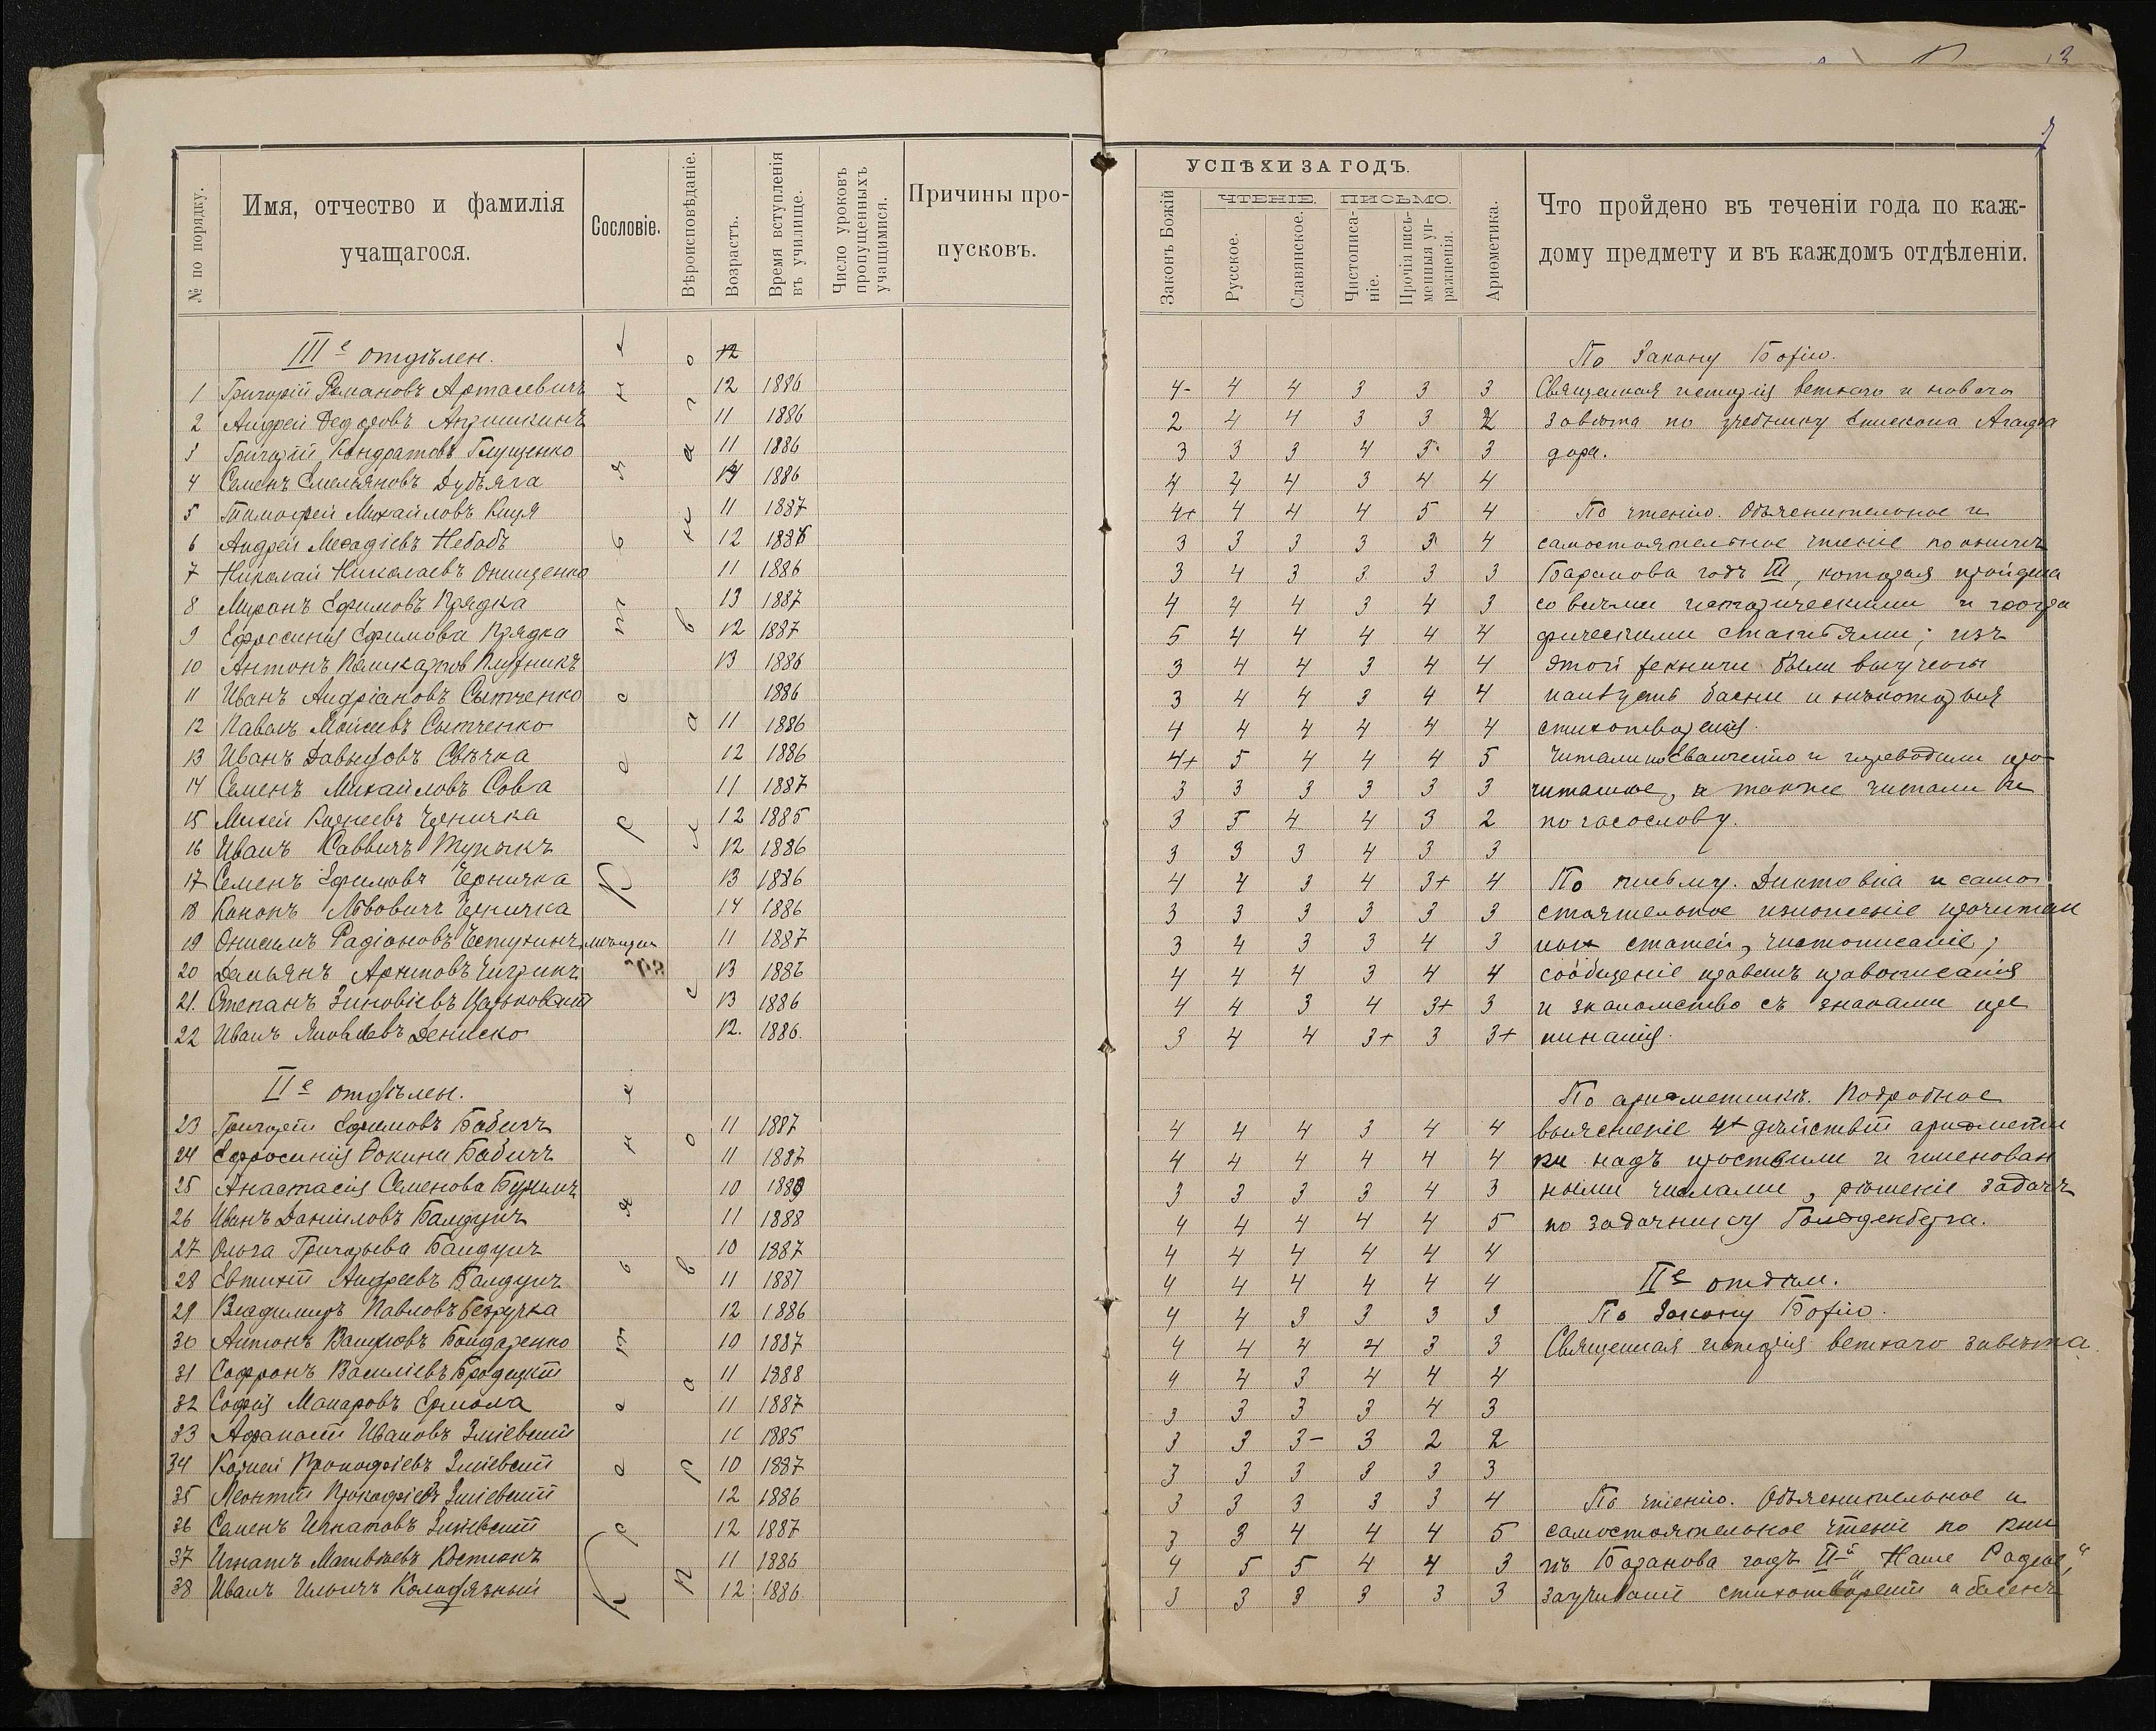 № по порядку.
Имя, отчество и фамилія учащагося.
Сословіе.
Вѣроисповѣданіе.
Возрастъ.
Время вступленія въ училище.
Число уроковъ пропущенныхъ учащимися.
Причины пропусковъ.
III е отдѣлен.
Крестьянск
Православнаго
1 Григорій Романовъ Арталевичъ 12 1886
2 Андрей Федоровъ Андрюшкинъ 11 1886
3 Григорій Кондратовъ Глущенко 11 1886
4 Семенъ Емельяновъ Дубъяга 1886
5 Тимофей Михайловъ Куця 11 1887
6 Андрей Меѳодіевъ Небабъ 12 1886
7 Николай Николаевъ Онищенко 11 1886
8 Миронъ Ефимовъ Прядка 13 1887
9 Ефросинія Ефимова Прядка 12 1887
10 Антонъ Поликарповъ Плужникъ 13 1886
11 Иванъ Андріановъ Сытченко 1886
12 Павелъ Моисеевъ Сытченко 11 1886
13 Иванъ Давыдовъ Свѣчка 12 1886
14 Семенъ Михайловъ Сова 11 1887
15 Михей Корнеевъ Черничка 12 1885
16 Иванъ Саввичъ 12 1886
17 Семенъ Ефимовъ Черничка 13 1886
18 Кононъ Львовичъ Черничка 14 1886
19 Онисимъ Радіоновъ мѣщан 11 1887
20 Демьянъ 13 1886
21. Степанъ Зиновіевъ 13 1886
22 Иванъ Яковлевъ Дениско 12. 1886.
II е отдѣлен.
23 Григорій Ефимовъ Бабичъ 11 1887
24 Ефросинія Фокина Бабичъ 11 1887
25 Анастасія Семенова 10 1889
26 Иванъ Даніиловъ Балдуич 11 1888
27 Ольга Григорьева Балдуич 10 1887
28 Евтихій Андреевъ Балдуич 11 1887
29 Владимиръ Павловъ Безручка 12 1886
30 Антонъ Бондаренко 10 1887
31 Софронъ Василіевъ Бродецкій 11 1888
32 Софія Макаровъ Ермола 11 1887
33 Афанасій Ивановъ Зміевскій 1885
34 Корней Прокофіевъ Зміевскій 10 1887
35 Леонтій Прокофіевъ Зміевскій 12 1886
36 Семенъ Игнатовъ Зміевскій 12 1887
37 Игнатъ Матвѣевъ Костюкъ 11 1886
38 Иванъ Ильичъ Колодяжный 12 1886
УСПѢХИ ЗА ГОДЪ.
Законъ Божій
ЧТЕНІЕ.
Русское.
Славянское.
ПИСЬМО.
Чистописаніе.
Прочія письменныя упражненія.
Ариѳметика.
Что пройдено въ теченіи года по каждому предмету и въ каждомъ отдѣленіи.
По Закону Божію.
4- 4 4 3 3 3 Священная исторія ветхаго и новаго
2 4 4 3 3 2 завѣта по учебнику Епископа Агаѳо
3 3 3 4 3 3 дора.
4 4 4 3 4 4
4+ 4 4 4 5 4 По чтенію. Объяснительное и
3 3 3 3 3 4 самостоятельное чтеніе по книгѣ
3 4 3 3 3 3 Баранова годъ III, которая пройдена
4 4 4 3 4 3 со всѣми историческими и геогра
5 4 4 4 4 4 фическими статьями; изъ
3 4 4 3 4 4 этой же книги были выучены
3 4 4 3 4 4 наизусть басни и нѣкоторыя
4 4 4 4 4 4 стихотворенія.
4+ 5 4 4 4 5 Читали по Евангелію и переводили про
3 3 3 3 3 3 читанное, а также читали и
3 5 4 4 3 2 по часослову.
3 3 3 4 3 3
4 4 3 4 3+ 4 По письму. Диктовка и само
3 3 3 3 3 3 стоятельное изложеніе прочитан
3 4 3 3 4 3 ных статей, чистописаніе,
4 4 4 3 4 4 сообщеніе правилъ правописанія
4 4 3 4 3+ 3 и знакомство съ знаками пре
3 4 4 3+ 3 3+ пинанія.
По ариѳметикѣ. Подробное
4 4 4 3 4 4 выясненіе 4х дѣйствій ариѳмети
4 4 4 4 4 4 ки надъ простыми и именован
3 3 3 3 4 3 ными числами, рѣшеніе задачъ
4 4 4 4 4 5 по задачнику Гольденберга.
4 4 4 4 4 4
4 4 4 4 4 4 II е отдѣл.
4 4 3 3 3 3 По Закону Божію.
4 4 4 4 3 3 Священная исторія ветхаго завѣта.
4 4 3 4 4 4
3 3 3 3 4 3
3 3 3- 3 2 2
3 3 3 3 3 3
3 3 3 3 3 4 По чтенію. Объяснительное и
3 3 4 4 4 5 самостоятельное чтеніе по кни
4 5 5 4 4 3 гѣ Баранова годъ II-й „Наше Родное,“
3 3 3 3 3 3 заучиваніе стихотвореній и басенъ